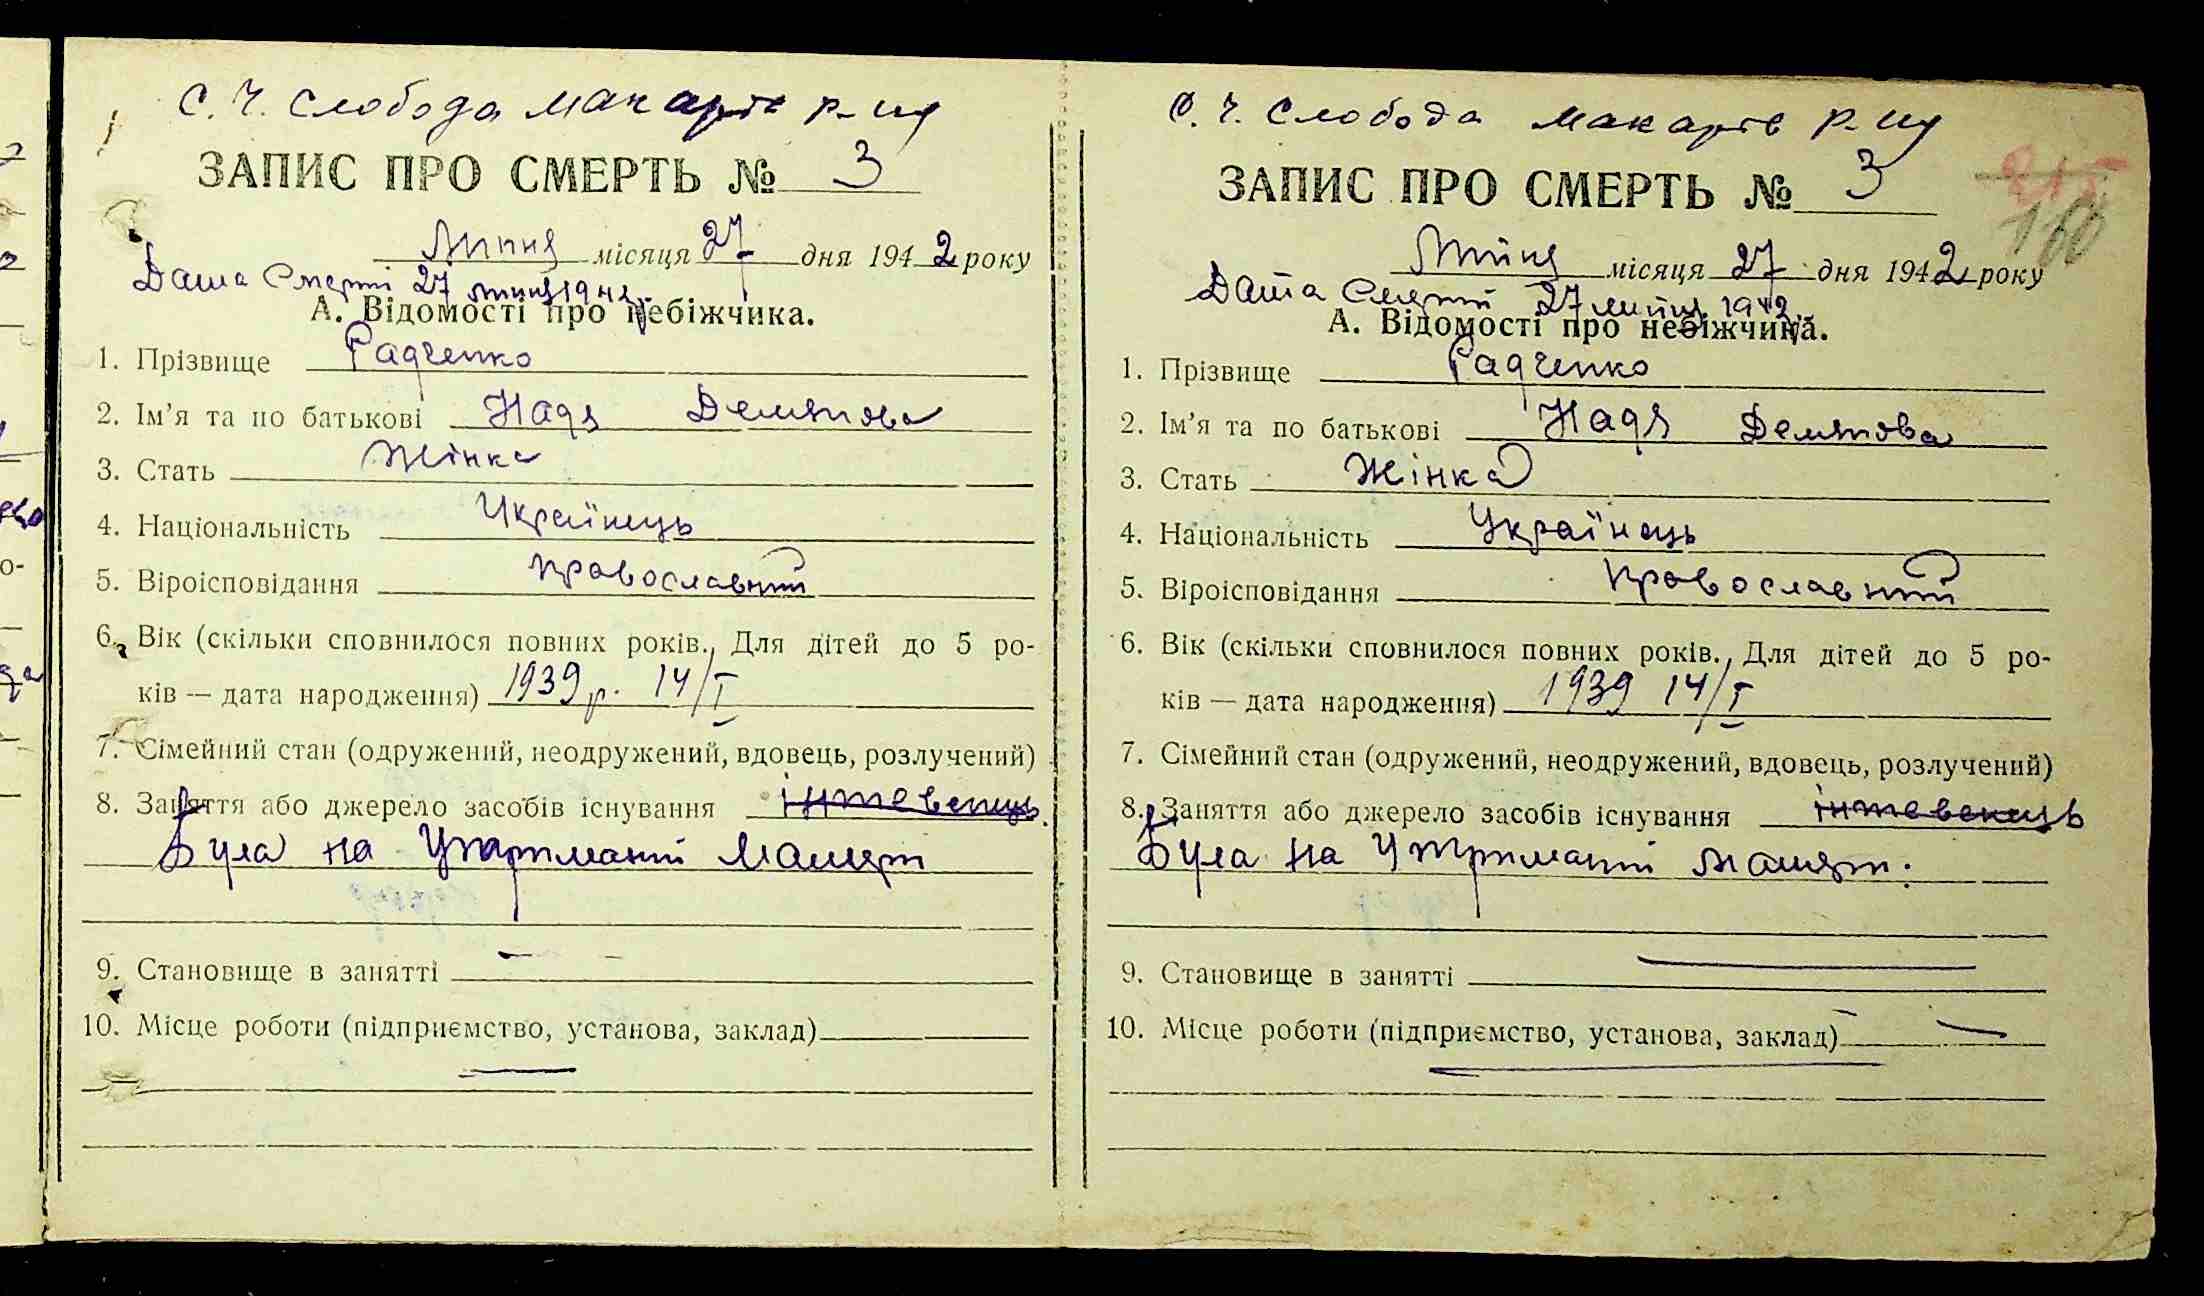 С. Ч. Слобода Макарів р-ну
ЗАПИС ПРО СМЕРТЬ № 3
Липня місяця 27 дня 1942 року
Дата Смерті 27 липня 1942 р.
А. Відомості про небіжчика.
1. Прізвище Радченко
2. Ім'я та по батькові Надя Демянова
3. Стать Жінка
4. Національність Українець
5. Віроісповідання православний
6. Вік (скільки сповнилося повних років. Для дітей до 5 ро-
ків — дата народження) 1939 р. 14/I
7. Сімейний стан (одружений, неодружений, вдовець, розлучений)
8. Заняття або джерело засобів існування
Була на Утриманні Матері
9. Становище в занятті —
10. Місце роботи (підприємство, установа, заклад)
—
С. Ч. Слобода Макарів р-ну
ЗАПИС ПРО СМЕРТЬ № 3
160
Липня місяця 27 дня 1942 року
Дата Смерті 27 липня 1942 р.
А. Відомості про небіжчика.
1. Прізвище Радченко
2. Ім'я та по батькові Надя Демянова
3. Стать Жінка
4. Національність Українець
5. Віроісповідання православний
6. Вік (скільки сповнилося повних років. Для дітей до 5 ро-
ків — дата народження) 1939 14/I
7. Сімейний стан (одружений, неодружений, вдовець, розлучений)
8. Заняття або джерело засобів існування
Була на Утриманні Матері.
9. Становище в занятті —
10. Місце роботи (підприємство, установа, заклад) —